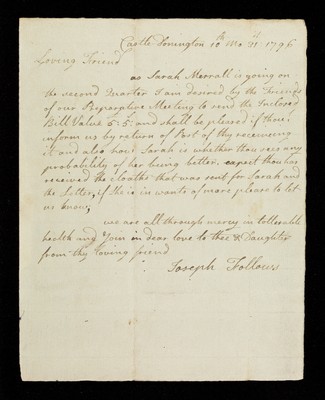 Castle Donington 12th Mo 31st 1796
Loving Friend
as Sarah Morrall is going on
the second Quarter I am desired by the Friends
of our Preparative Meeting to send the Inclosed
Bill Value 5-5s and shall be pleased if thee
inform us by return of Post of thy receiveing
it and also how Sarah is whether thou sees any
probability of her being better. expect thou has
received the Cloaths that was sent for Sarah and
the Letter, if she is in wants of more please to let
us know,
we are all through mercy in tollerable
health and Join in dear love to thee & Daughter
from thy loving friend
Joseph Follows